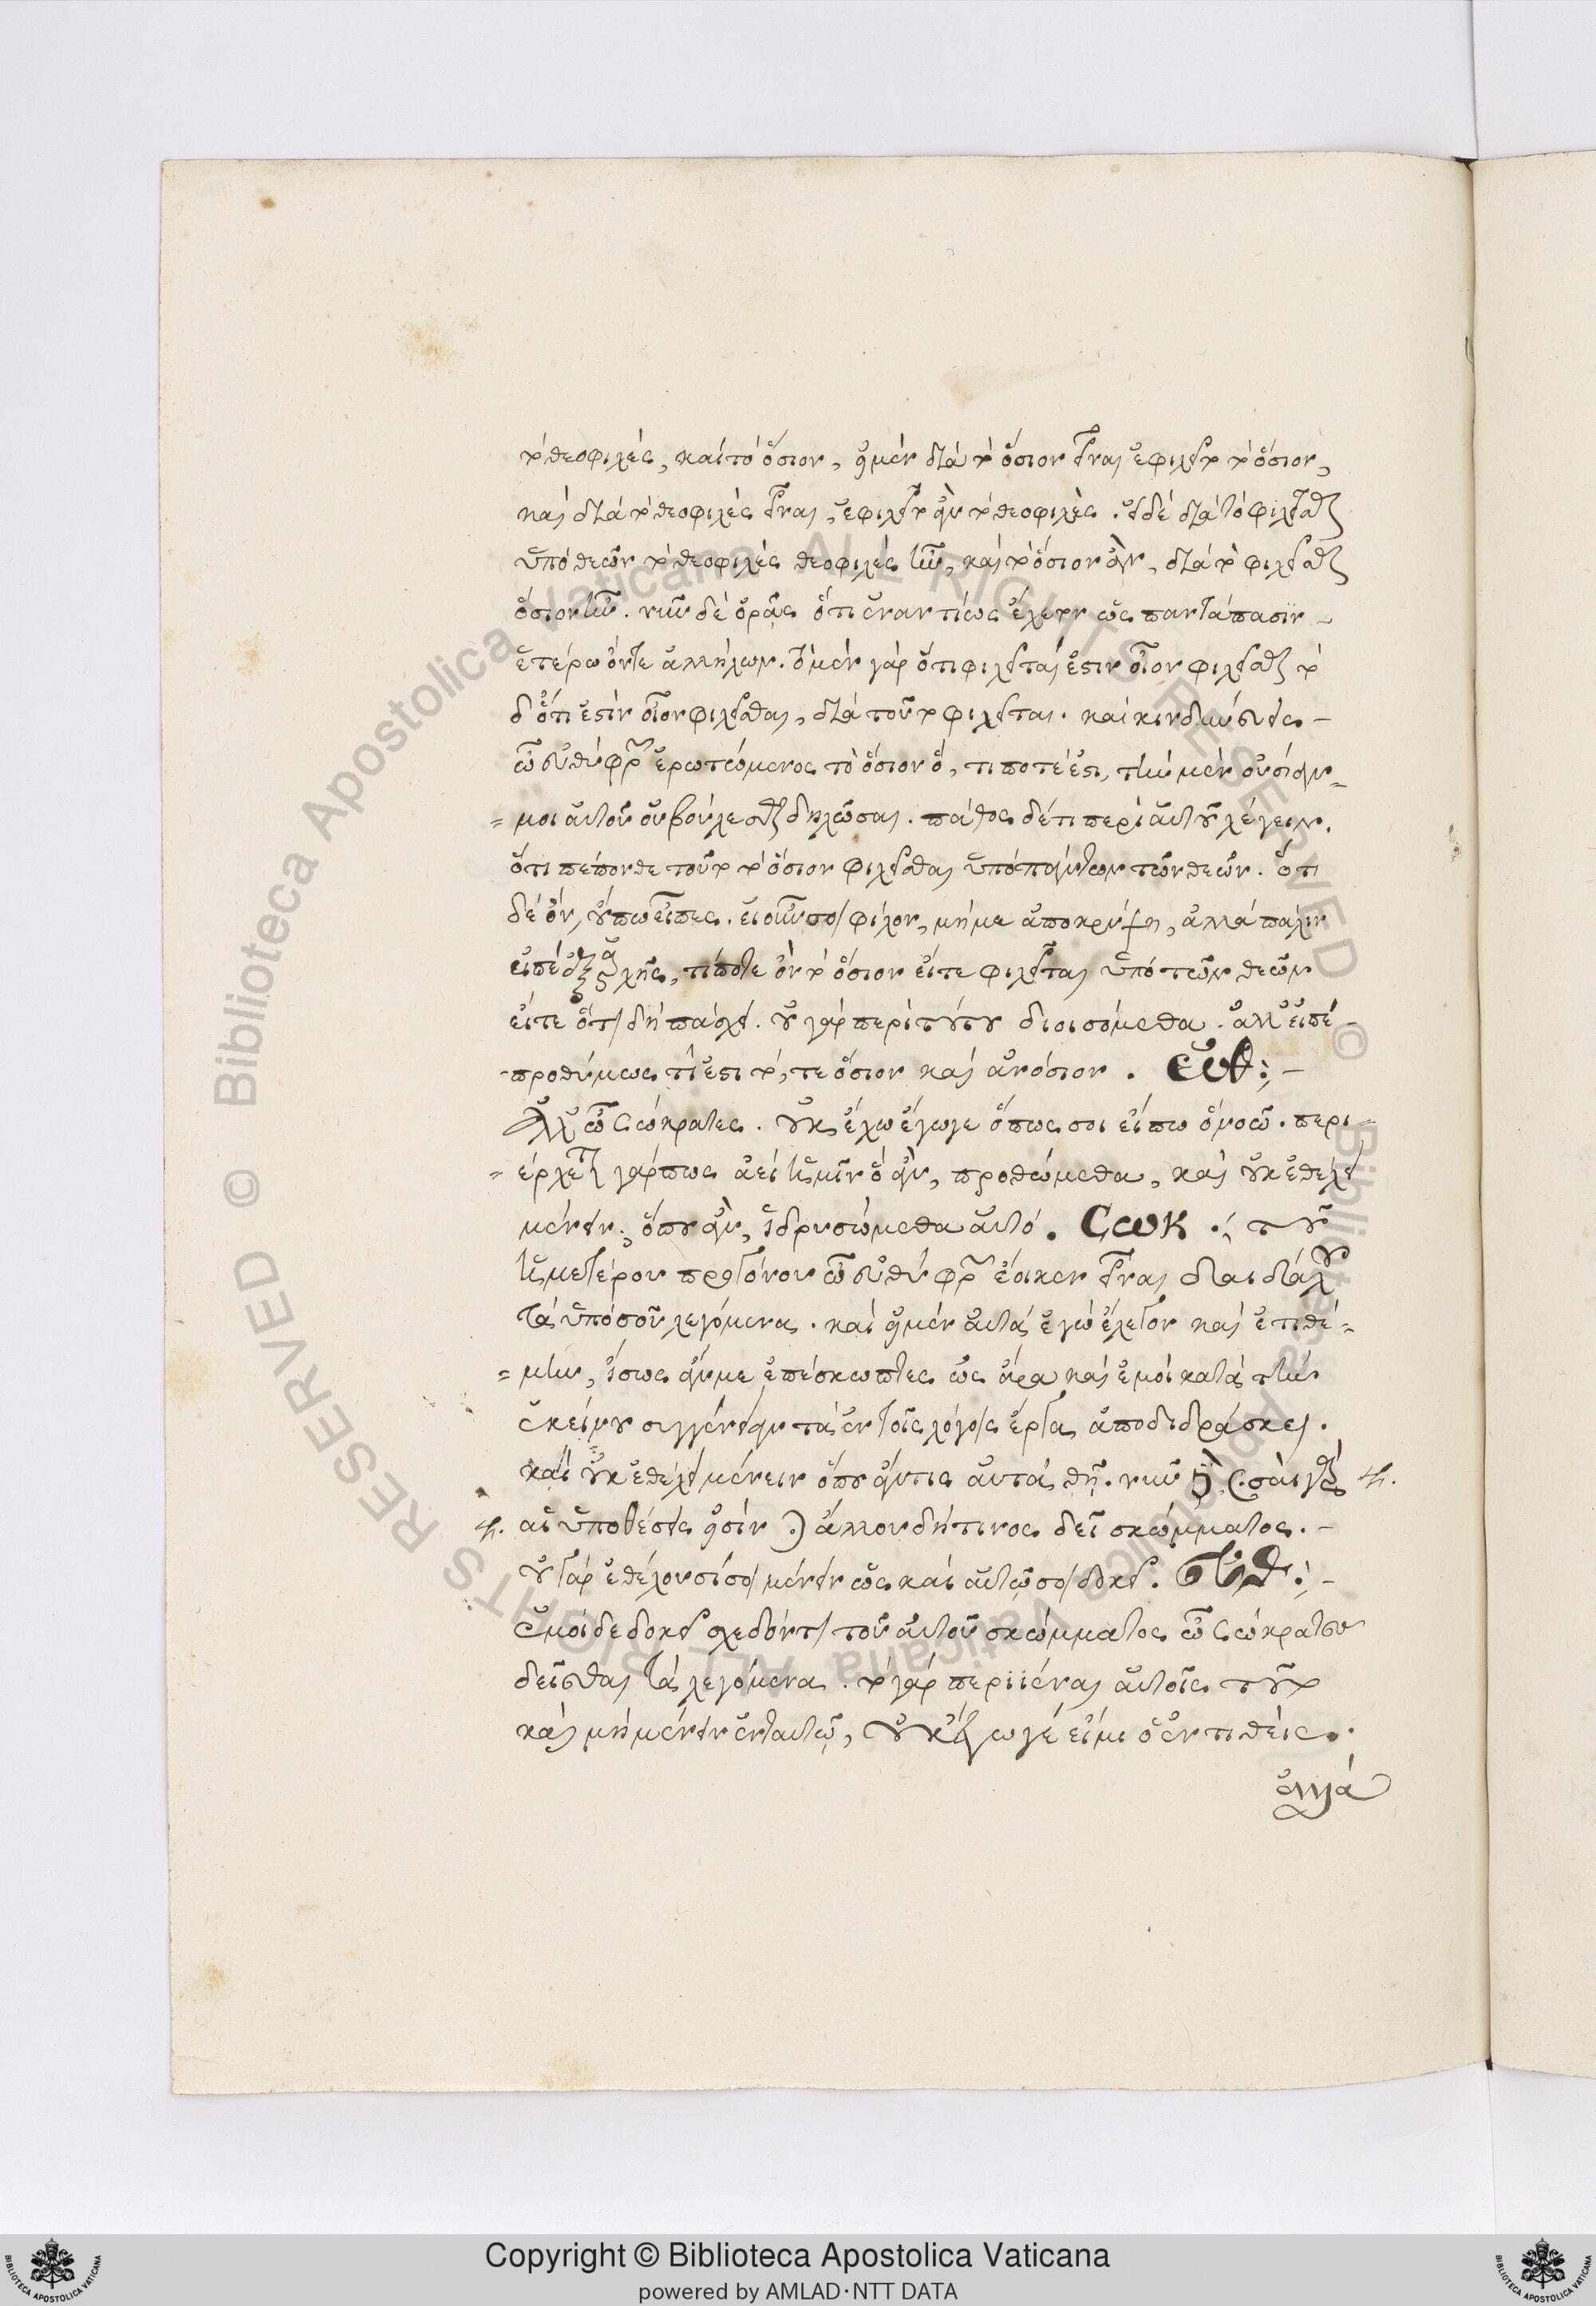 τὸ θεοφιλὲς, καὶ τὸ ὅσιον, εἰ μὲν διὰ τὸ ὅσιον εἶναι ἐφιλεῖτο τὸ ὅσιον,
καὶ διὰ τὸ θεοφιλὲς εἶναι, ἐφιλεῖτο ἂν τὸ θεοφιλὲς. εἰ δὲ διὰ τὸ φιλεῖσθαι
ὑπὸ θεῶν τὸ θεοφιλὲς θεοφιλὲς ἦν, καὶ τὸ ὅσιον ἂν, διὰ τὸ φιλεῖσθαι
ὅσιον ἦν. νῦν δὲ ὁρᾷς ὅτι ἐναντίως ἔχετον ὡς παντάπασιν
ἑτέρω ὄντε ἀλλήλων. τὸ μὲν γὰρ ὅτι φιλεῖται ἐστὶν οἷον φιλεῖσθαι τὸ
δ' ὅτι ἐστὶν οἷον φιλεῖσθαι, διὰ τοῦτο φιλεῖται. καὶ κινδυνεύεις
ὦ εὐθύφρον ἐρωτώμενος τὸ ὅσιον ὅ, τι ποτέ ἐστι, τὴν μὲν οὐσίαν
= μοι αὐτοῦ οὐ βούλεσθαι δηλῶσαι. πάθος δέ τι περὶ αὐτοῦ λέγειν.
ὅτι πέπονθε τοῦτο τὸ ὅσιον φιλεῖσθαι ὑπὸ πάντων τῶν θεῶν. ὅτι
δὲ ὂν, οὔπω εἶπες. εἰ οὖν σοι φίλον, μή με ἀποκρύψῃ, ἀλλὰ πάλιν
εἰπὲ ἐξ ἀρχῆς, τί ποτε ὂν τὸ ὅσιον εἴτε φιλεῖται ὑπὸ τῶν θεῶν
εἴτε ὅτι δὴ πάσχει. οὐ γὰρ περὶ τούτου διοισόμεθα. ἀλλ' εἰπὲ
προθύμως τί ἐστι τό, τε ὅσιον καὶ ἀνόσιον. ΕΥΘ:–
Ἀλλ' ὦ σώκρατες. οὐκ ἔχω ἔγωγε ὅπως σοι εἴπω ὃ νοῶ. περι-
= έρχεται γάρ πως ἀεὶ ἡμῖν ὃ ἂν, προθώμεθα, καὶ οὐκ ἐθέλει
μένειν, ὅπου ἂν, ἱδρυσώμεθα αὐτό. Σωκ: τοῦ
ἡμετέρου προγόνου ὦ εὐθύφρον ἔοικεν εἶναι δαιδάλου
τὰ ὑπὸ σοῦ λεγόμενα. καὶ εἰ μὲν αὐτὰ ἐγὼ ἔλεγον καὶ ἐτιθέ-
= μην, ἴσως ἄν με ἐπέσκωπτες ὡς ἄρα καὶ ἐμοὶ κατὰ τὴν
ἐκείνου συγγένειαν τὰ ἐν τοῖς λόγοις ἔργα ἀποδιδράσκει.
καὶ οὐκ ἐθέλει μένειν ὅπου ἄν τις αὐτὰ θῇ. νῦν δὲ (σαὶ γὰρ
αἱ ὑποθέσεις εἰσὶν) ἄλλου δή τινος δεῖ σκώμματος.–
οὐ γὰρ ἐθέλουσί σοι μένειν ὡς καὶ αὐτῷ σοι δοκεῖ. Εὐθ:–
ἐμοὶ δὲ δοκεῖ σχεδόν τι τοῦ αὐτοῦ σκώμματος ὦ σώκρατες
δεῖσθαι τὰ λεγόμενα. τὸ γὰρ περιϊέναι αὐτοῖς τοῦτο
καὶ μὴ μένειν ἐν ταυτῷ, οὐκ ἐγώ γέ εἰμι ὁ ἐντιθείς.
ἀλλὰ
Copyright © Biblioteca Apostolica Vaticana
powered by AMLAD·NTT DATA